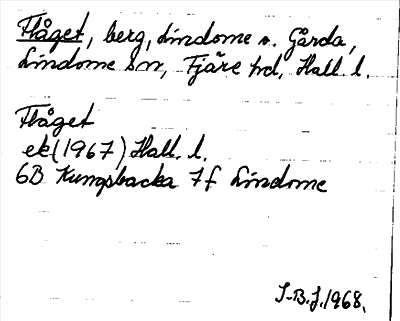 Flåget, berg, Lindome o. Gårda,
Lindome sn, Fjäre hd, Hall. l.
Flåget
ek (1967) Hall. l.
6B Kungsbacka 7f Lindome
S-B.J. 1968.